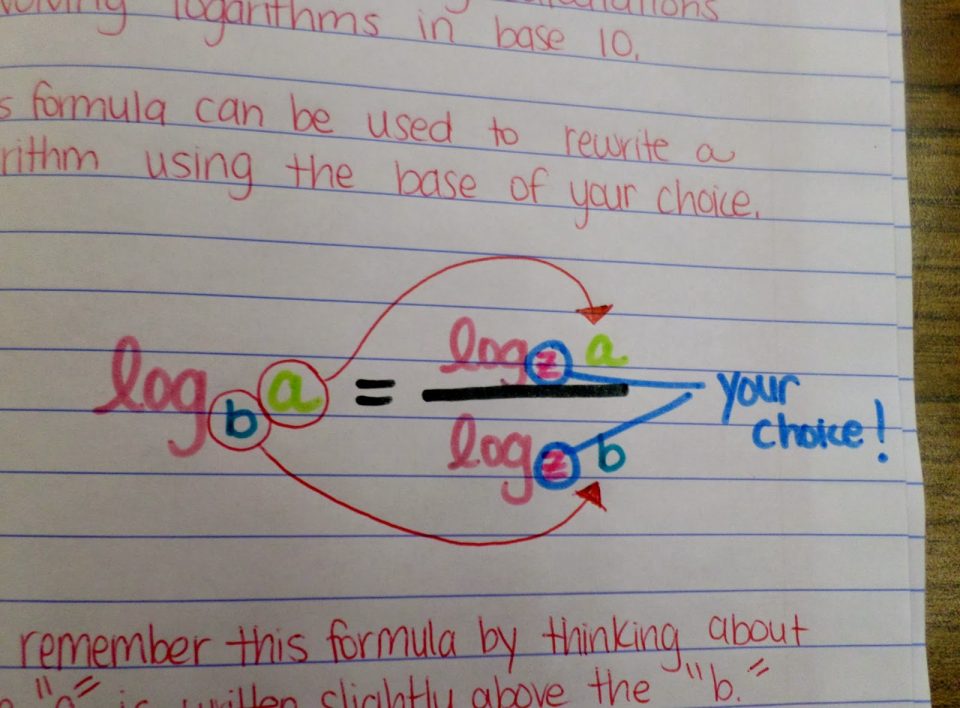 logarithms in base 10.
s formula can be used to rewrite a
rithm using the base of your choice.
log_b a = log_z a / log_z b
your
choice!
remember this formula by thinking about
"a" is written slightly above the "b."